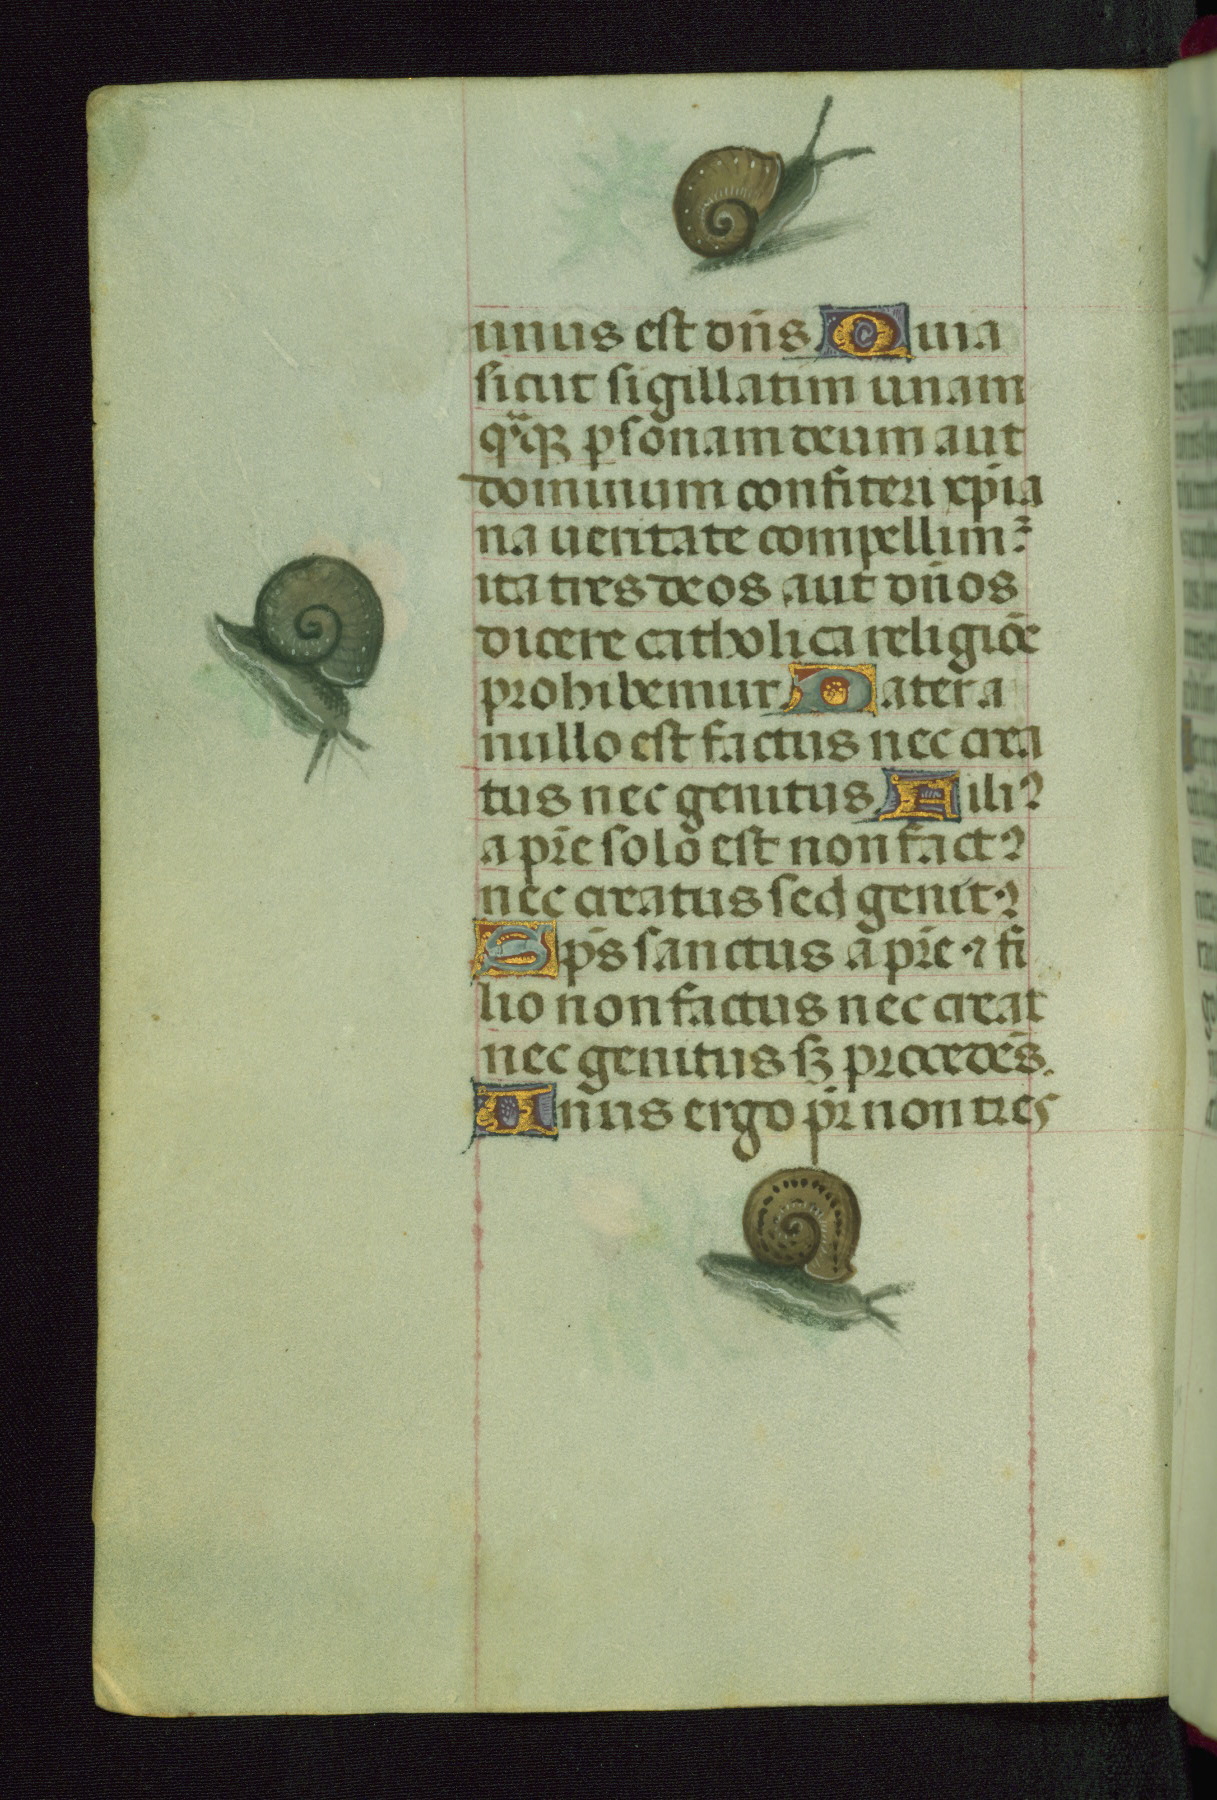 unus est dñs Quia
sicut sigillatim unam
quamqꝫ psonam deum aut
dominum confiteri xpia
na ueritate compellimꝰ
ita tres deos aut dños
dicere catholica religiōe
prohibemur Pater a
nullo est factus nec crea
tus nec genitus Filiꝰ
a pre solo est non factꝰ
nec creatus sed genitꝰ
Sps sanctus a pre ⁊ fi
lio non factus nec creat
nec genitus sꝫ procedēs.
Unus ergo pr non tres